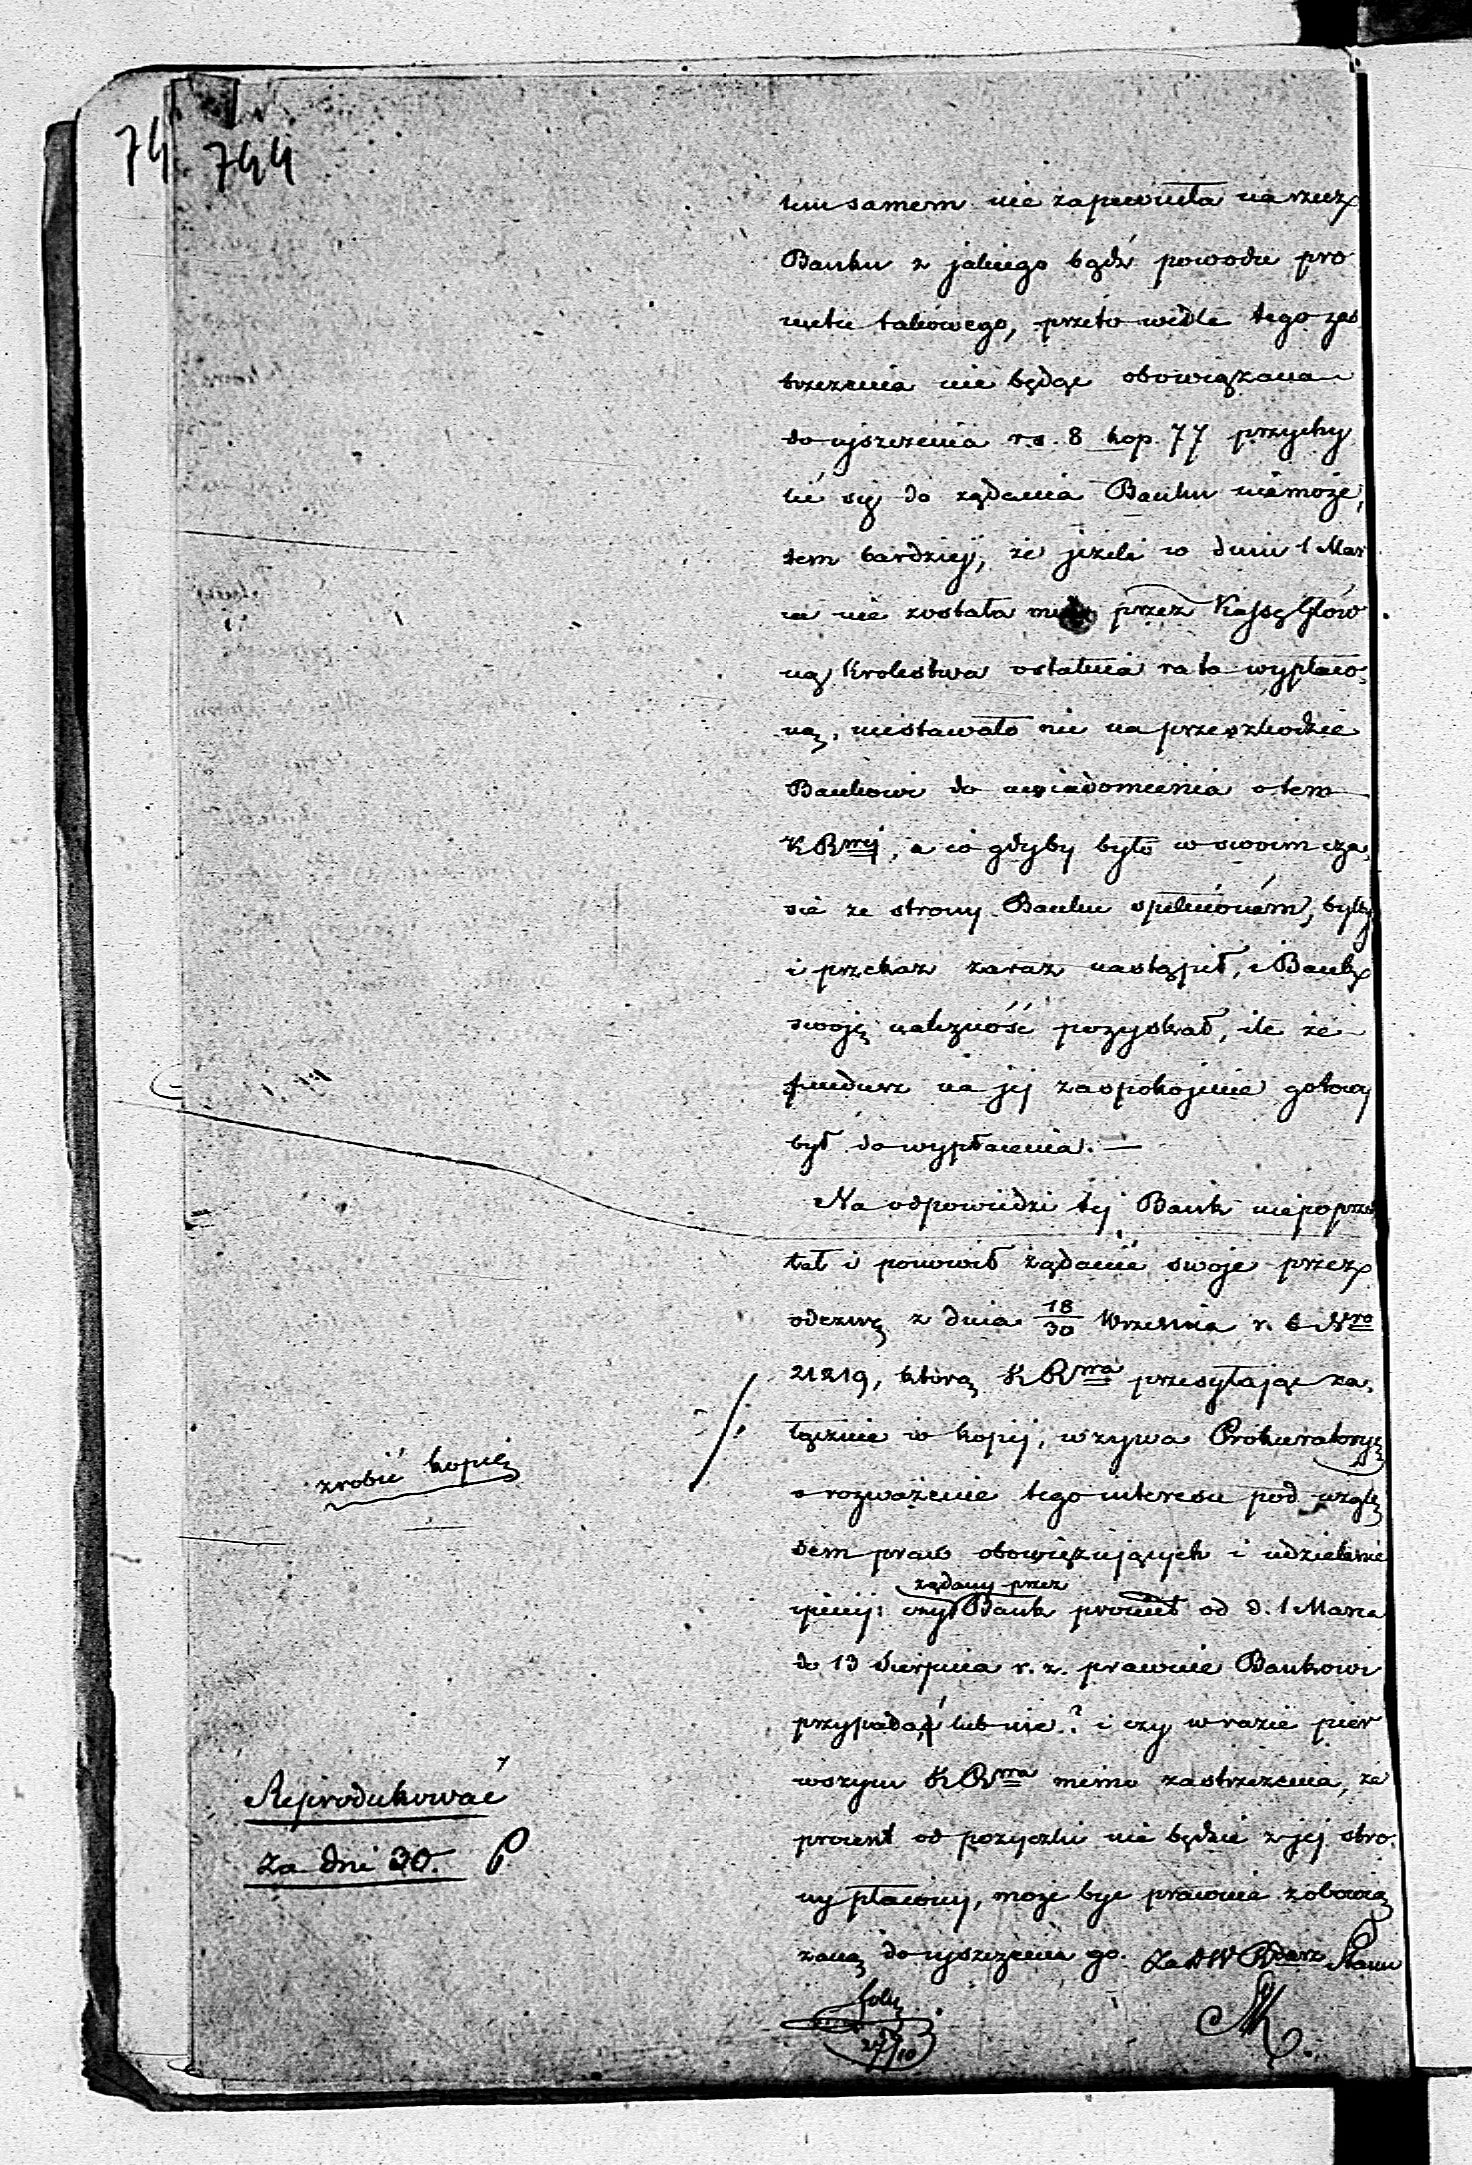 74
744
tem samem nie zapewniła na rzecz
Banku z jakiego bądź powodu pro
centu takowego, przeto wedle tego zas
trzeżenia nie będąc obowiązana
do ujszczenia r.s. 8 kop. 77 przychy
lić się do żądania Banku niemoże,
tem bardziej, że jeżeli w dniu 1 Mar
ca nie została przez Kassę Głów
ną Królestwa ostatnia rata wypłaco,
ną, niestawało nic na przeszkodzie
Bankowi do uwiadomienia o tem
KRmej, a co gdyby było w swoim cza,
sie ze strony Banku spełnioném, byłby
i przekaz zaraz nastąpił, i Bank
swoję należność pozyskał, ile że
fundusz na jej zaspokojenie gotowy
był do wypłacenia. —
Na odpowiedzi tej Bank niepoprzes
tał i ponowił żądanie swoje przez
odezwę z dnia 18/30 Września r. b Nro
21219, którą KRma przesyłając za,
łącznie w kopij, wzywa Prokuratoryę
o rozważenie tego interesu pod wzglę
dem praw obowięzujących i udzielenie
opinij: czy żądany przez Bank procent od d. 1 Marca
do 13 Sierpnia r. z. prawnie Bankowi
przypada, lub nie? i czy w razie pier
wszym KRma mimo zastrzeżenia, że
procent od pożyczki nie będzie z jej stro,
ny płacony, może być prawnie zobowią
zaną do ujszczenia go. Za Stanu
27/10
zrobić kopię
Reprodukować
za dni 30. P